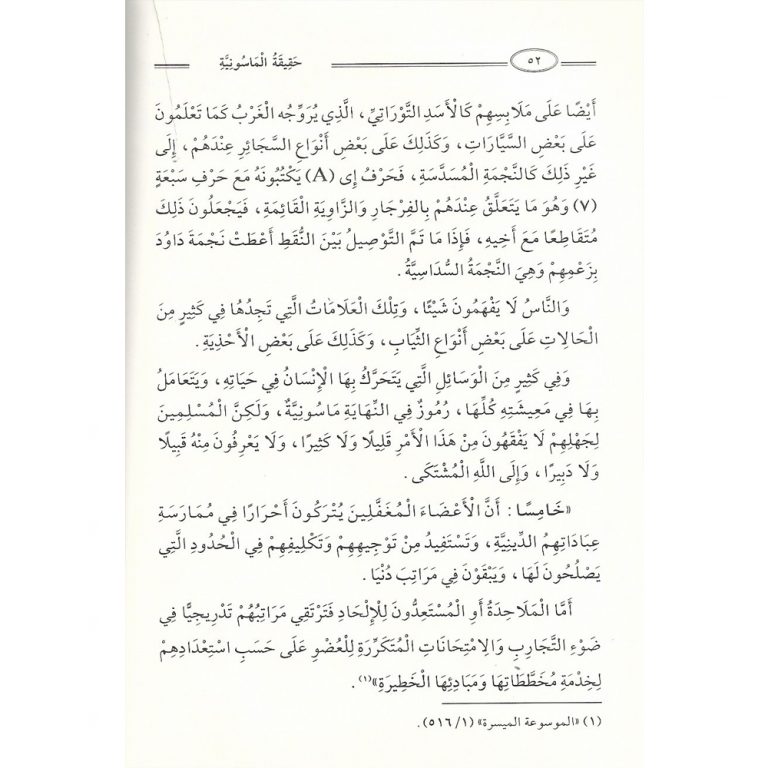 ٥٢ حَقِيقَةُ الْمَاسُونِيَّةِ
أَيْضًا عَلَى مَلَابِسِهِمْ كَالْأَسَدِ التَّوْرَاتِيِّ، الَّذِي يُرَوِّجُه الْغَرْبُ كَمَا تَعْلَمُونَ
عَلَى بَعْضِ السَّيَّارَاتِ، وَكَذَلِكَ عَلَى بَعْضِ أَنْوَاعِ السَّجَائِرِ عِنْدَهُمْ، إِلَى
غَيْرِ ذَلِكَ كَالنَّجْمَةِ الْمُسَدَّسَةِ، فَحَرْفُ إِى (A) يَكْتُبُونَهُ مَعَ حَرْفِ سَبْعَةٍ
(٧) وَهُوَ مَا يَتَعَلَّقُ عِنْدَهُمْ بِالفِرْجَارِ وَالزَّاوِيَةِ الْقَائِمَةِ، فَيَجْعَلُونَ ذَلِكَ
مُتَقَاطِعًا مَعَ أَخِيهِ، فَإِذَا مَا تَمَّ التَّوْصِيلُ بَيْنَ النُّقَطِ أَعْطَتْ نَجْمَةَ دَاوُدَ
بِزَعْمِهِمْ وَهِيَ النَّجْمَةُ السُّدَاسِيَّةُ.
وَالنَّاسُ لَا يَفْهَمُونَ شَيْئًا، وَتِلْكَ الْعَلَامَاتُ الَّتِي تَجِدُهَا فِي كَثِيرٍ مِنَ
الْحَالِاتِ عَلَى بَعْضِ أَنْوَاعِ الثِّيَابِ، وَكَذَلِكَ عَلَى بَعْضِ الْأَحْذِيَةِ.
وَفِي كَثِيرٍ مِنَ الْوَسَائِلِ الَّتِي يَتَحَرَّكُ بِهَا الْإِنْسَانُ فِي حَيَاتِهِ، وَيَتَعَامَلُ
بِهَا فِي مَعِيشَتِهِ كُلِّهَا، رُمُوزٌ فِي النِّهَايَةِ مَاسُونِيَّةٌ، وَلَكِنَّ الْمُسْلِمِينَ
لِجَهْلِهِمْ لَا يَفْقَهُونَ مِنْ هَذَا الْأَمْرِ قَلِيلًا وَلَا كَثِيرًا، وَلَا يَعْرِفُونَ مِنْهُ قَبِيلًا
وَلَا دَبِيرًا، وَإِلَى اللَّهِ الْمُشْتَكَى.
«خَامِسًا: أَنَّ الْأَعْضَاءَ الْمُغَفَّلِينَ يُتْرَكُونَ أَحْرَارًا فِي مُمَارَسَةِ
عِبَادَاتِهِمُ الدِّينِيَّةِ، وَتَسْتَفِيدُ مِنْ تَوْجِيهِهِمْ وَتَكْلِيفِهِمْ فِي الْحُدُودِ الَّتِي
يَصْلُحُونَ لَهَا، وَيَبْقَوْنَ فِي مَرَاتِبَ دُنْيَا.
أَمَّا الْمَلَاحِدَةُ أَوِ الْمُسْتَعِدُّونَ لِلْإِلْحَادِ فَتَرْتَقِي مَرَاتِبُهُمْ تَدْرِيجِيًّا فِي
ضَوْءِ التَّجَارِبِ وَالِامْتِحَانَاتِ الْمُتَكَرِّرَةِ لِلْعُضْوِ عَلَى حَسَبِ اسْتِعْدَادِهِمْ
لِخِدْمَةِ مُخَطَّطَاتِهَا وَمَبَادِئِهَا الْخَطِيرَةِ»(١).
(١) «الموسوعة الميسرة» (١/ ٥١٦).